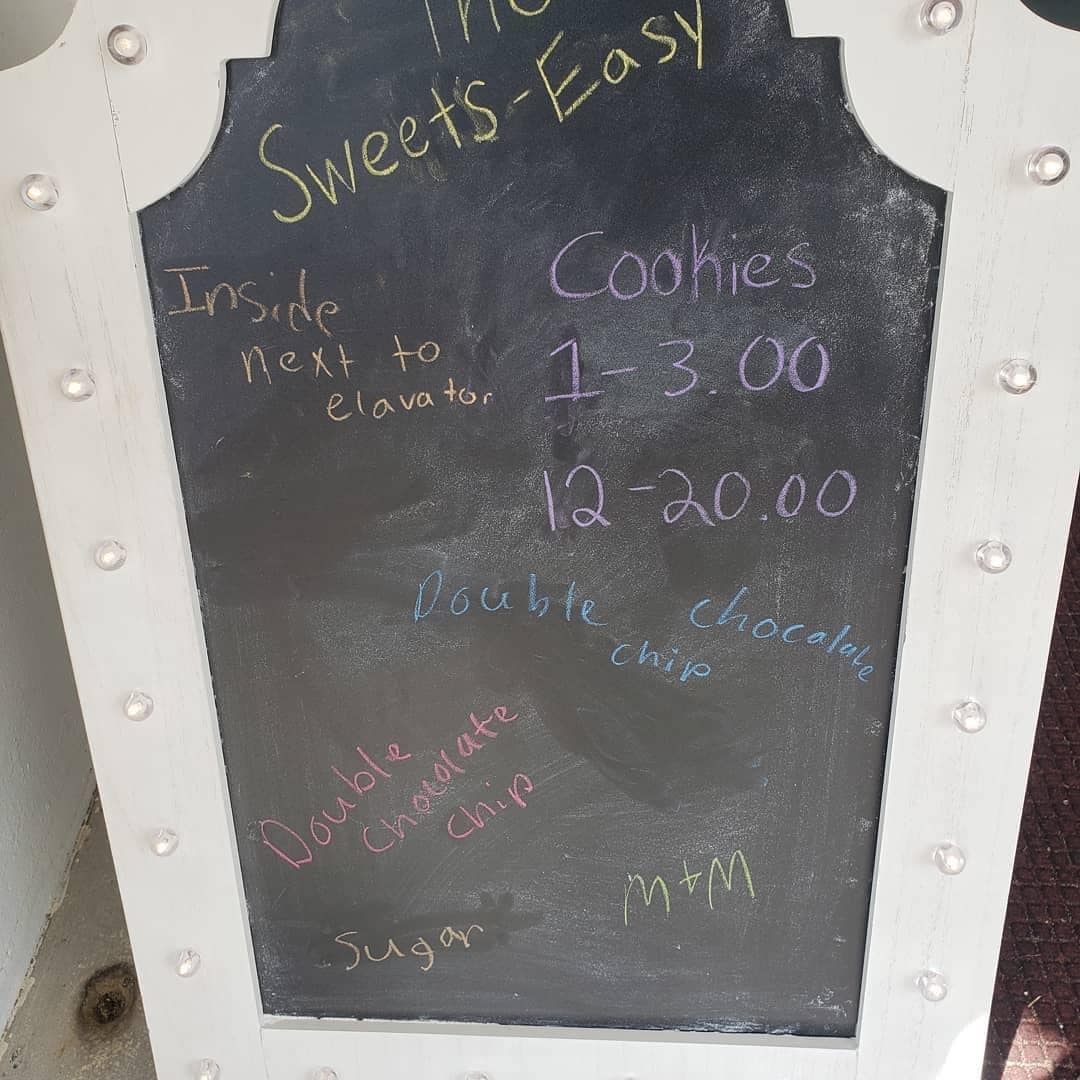 The
Sweets-Easy
Inside
next to
elavator
Cookies
1-3.00
12-20.00
Double chocalate
chip
Double
chocolate
chip
M+M
Sugar